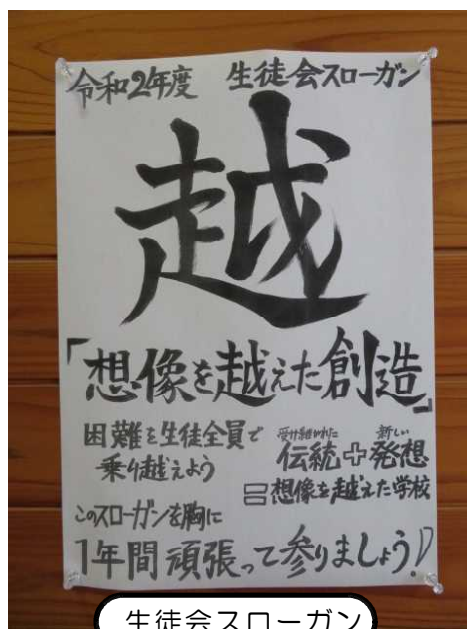 令和2年度 生徒会スローガン
越
「想像を越えた創造」
困難を生徒全員で
乗り越えよう
受け継がれた 新しい
伝統+発想
=想像を越えた学校
このスローガンを胸に
1年間頑張って参りましょう!
生徒会スローガン